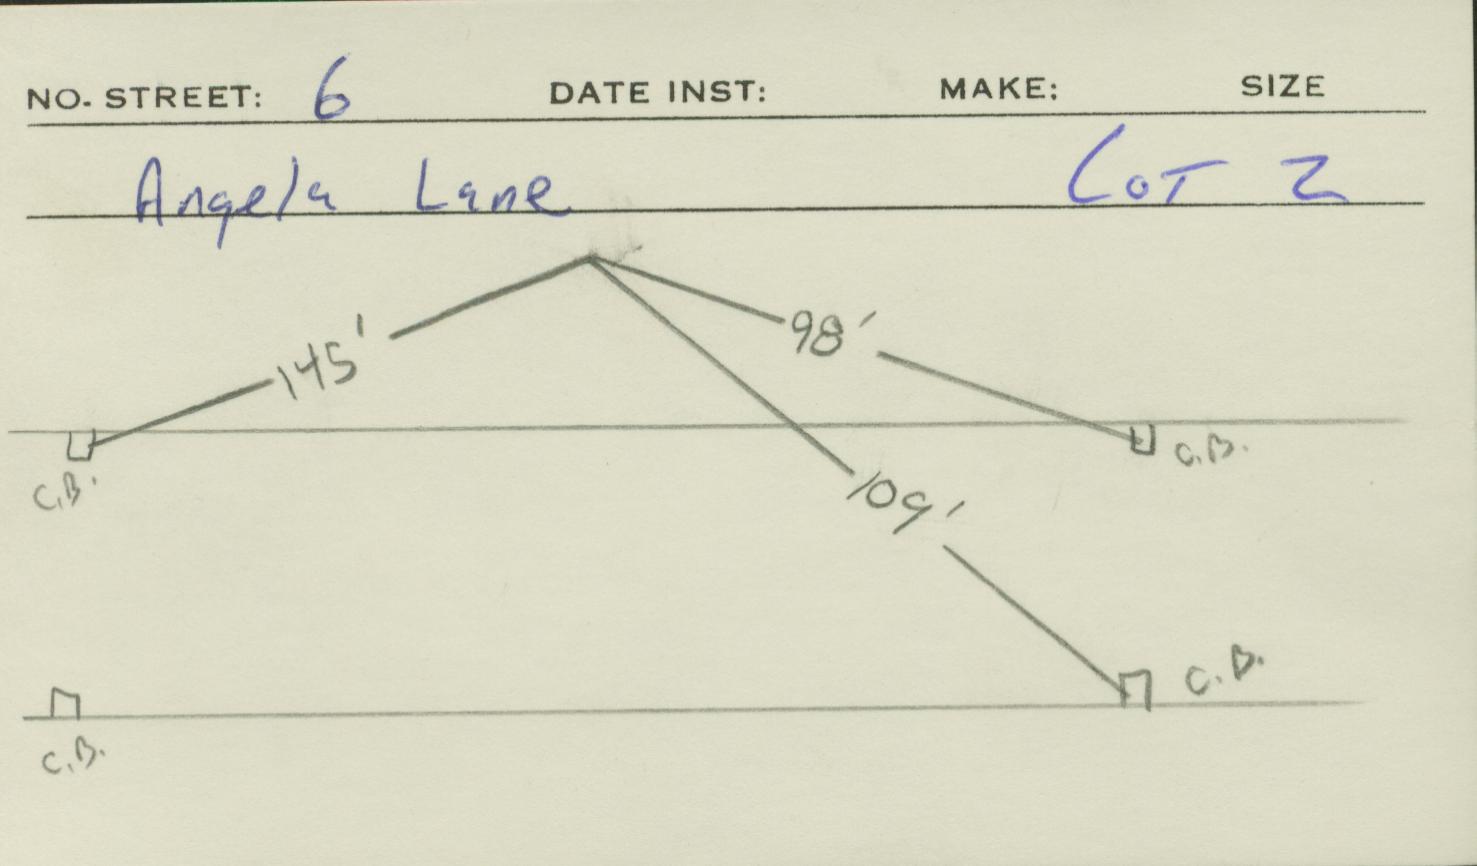 NO. STREET: 6 DATE INST: MAKE: SIZE
Angela Lane LOT 2
98'
145'
C.B.
C.B.
109'
C.B.
C.B.